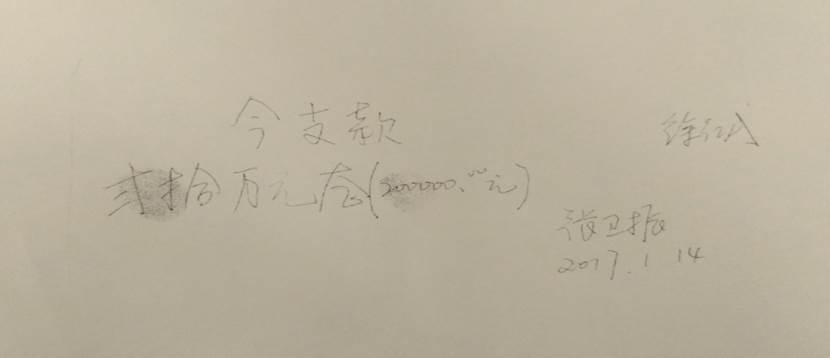 今支款
贰拾万元整(200000.00元)
张卫振
2017.1 14